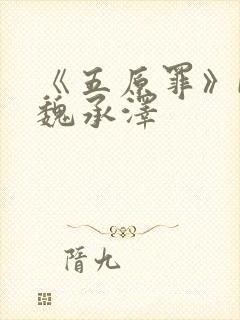 《五原罪》
魏承澤
隋九